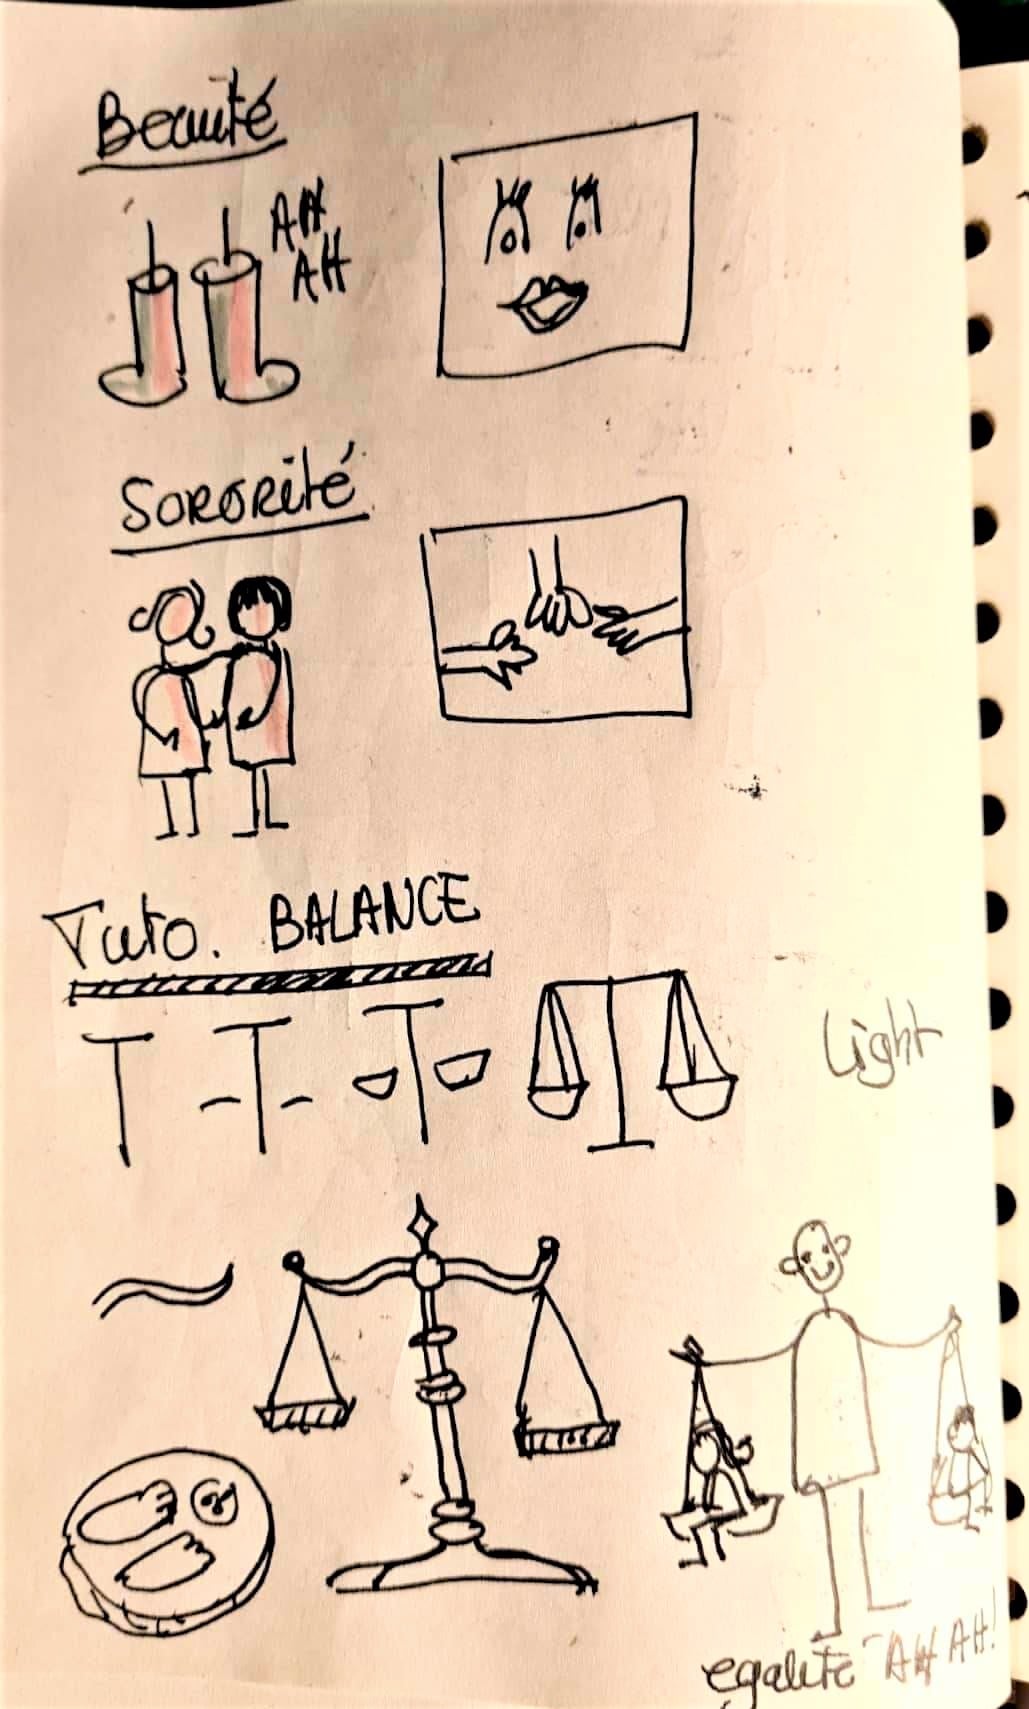 Beauté
AH
AH
SORORité
Tuto. BALANCE
Light
egalité AH AH!